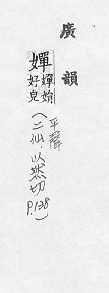 廣韻
嬋
嬋娟
好皃
平聲
(二仙以然切 P.138)